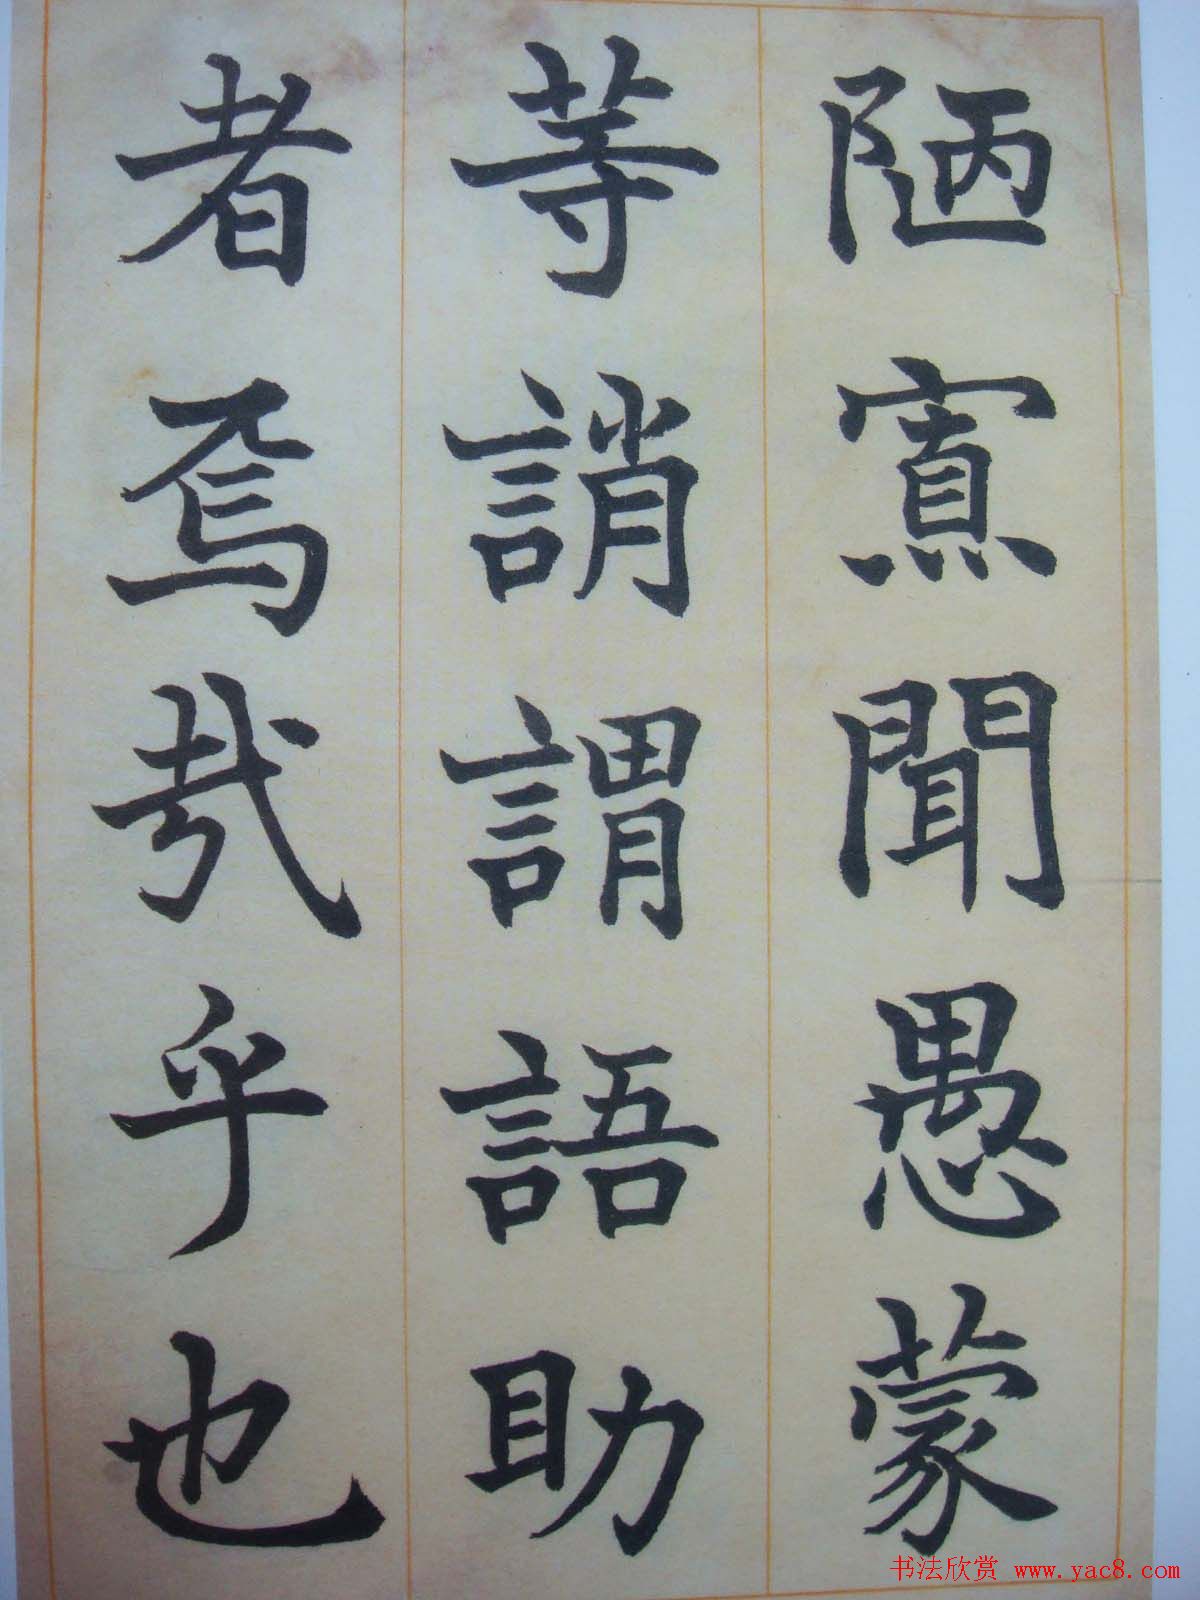 陋寡聞愚蒙
等誚謂語助
者焉哉乎也
书法欣赏 www.yac8.com